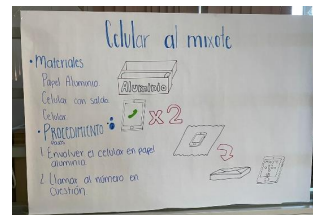 Celular al mixote
• Materiales
Papel Aluminio
Aluminio
Celular con saldo
Celular
x2
• PROCEDIMIENTO
1. Envolver el celular en papel
aluminio
2. Llamar al número en
cuestión.